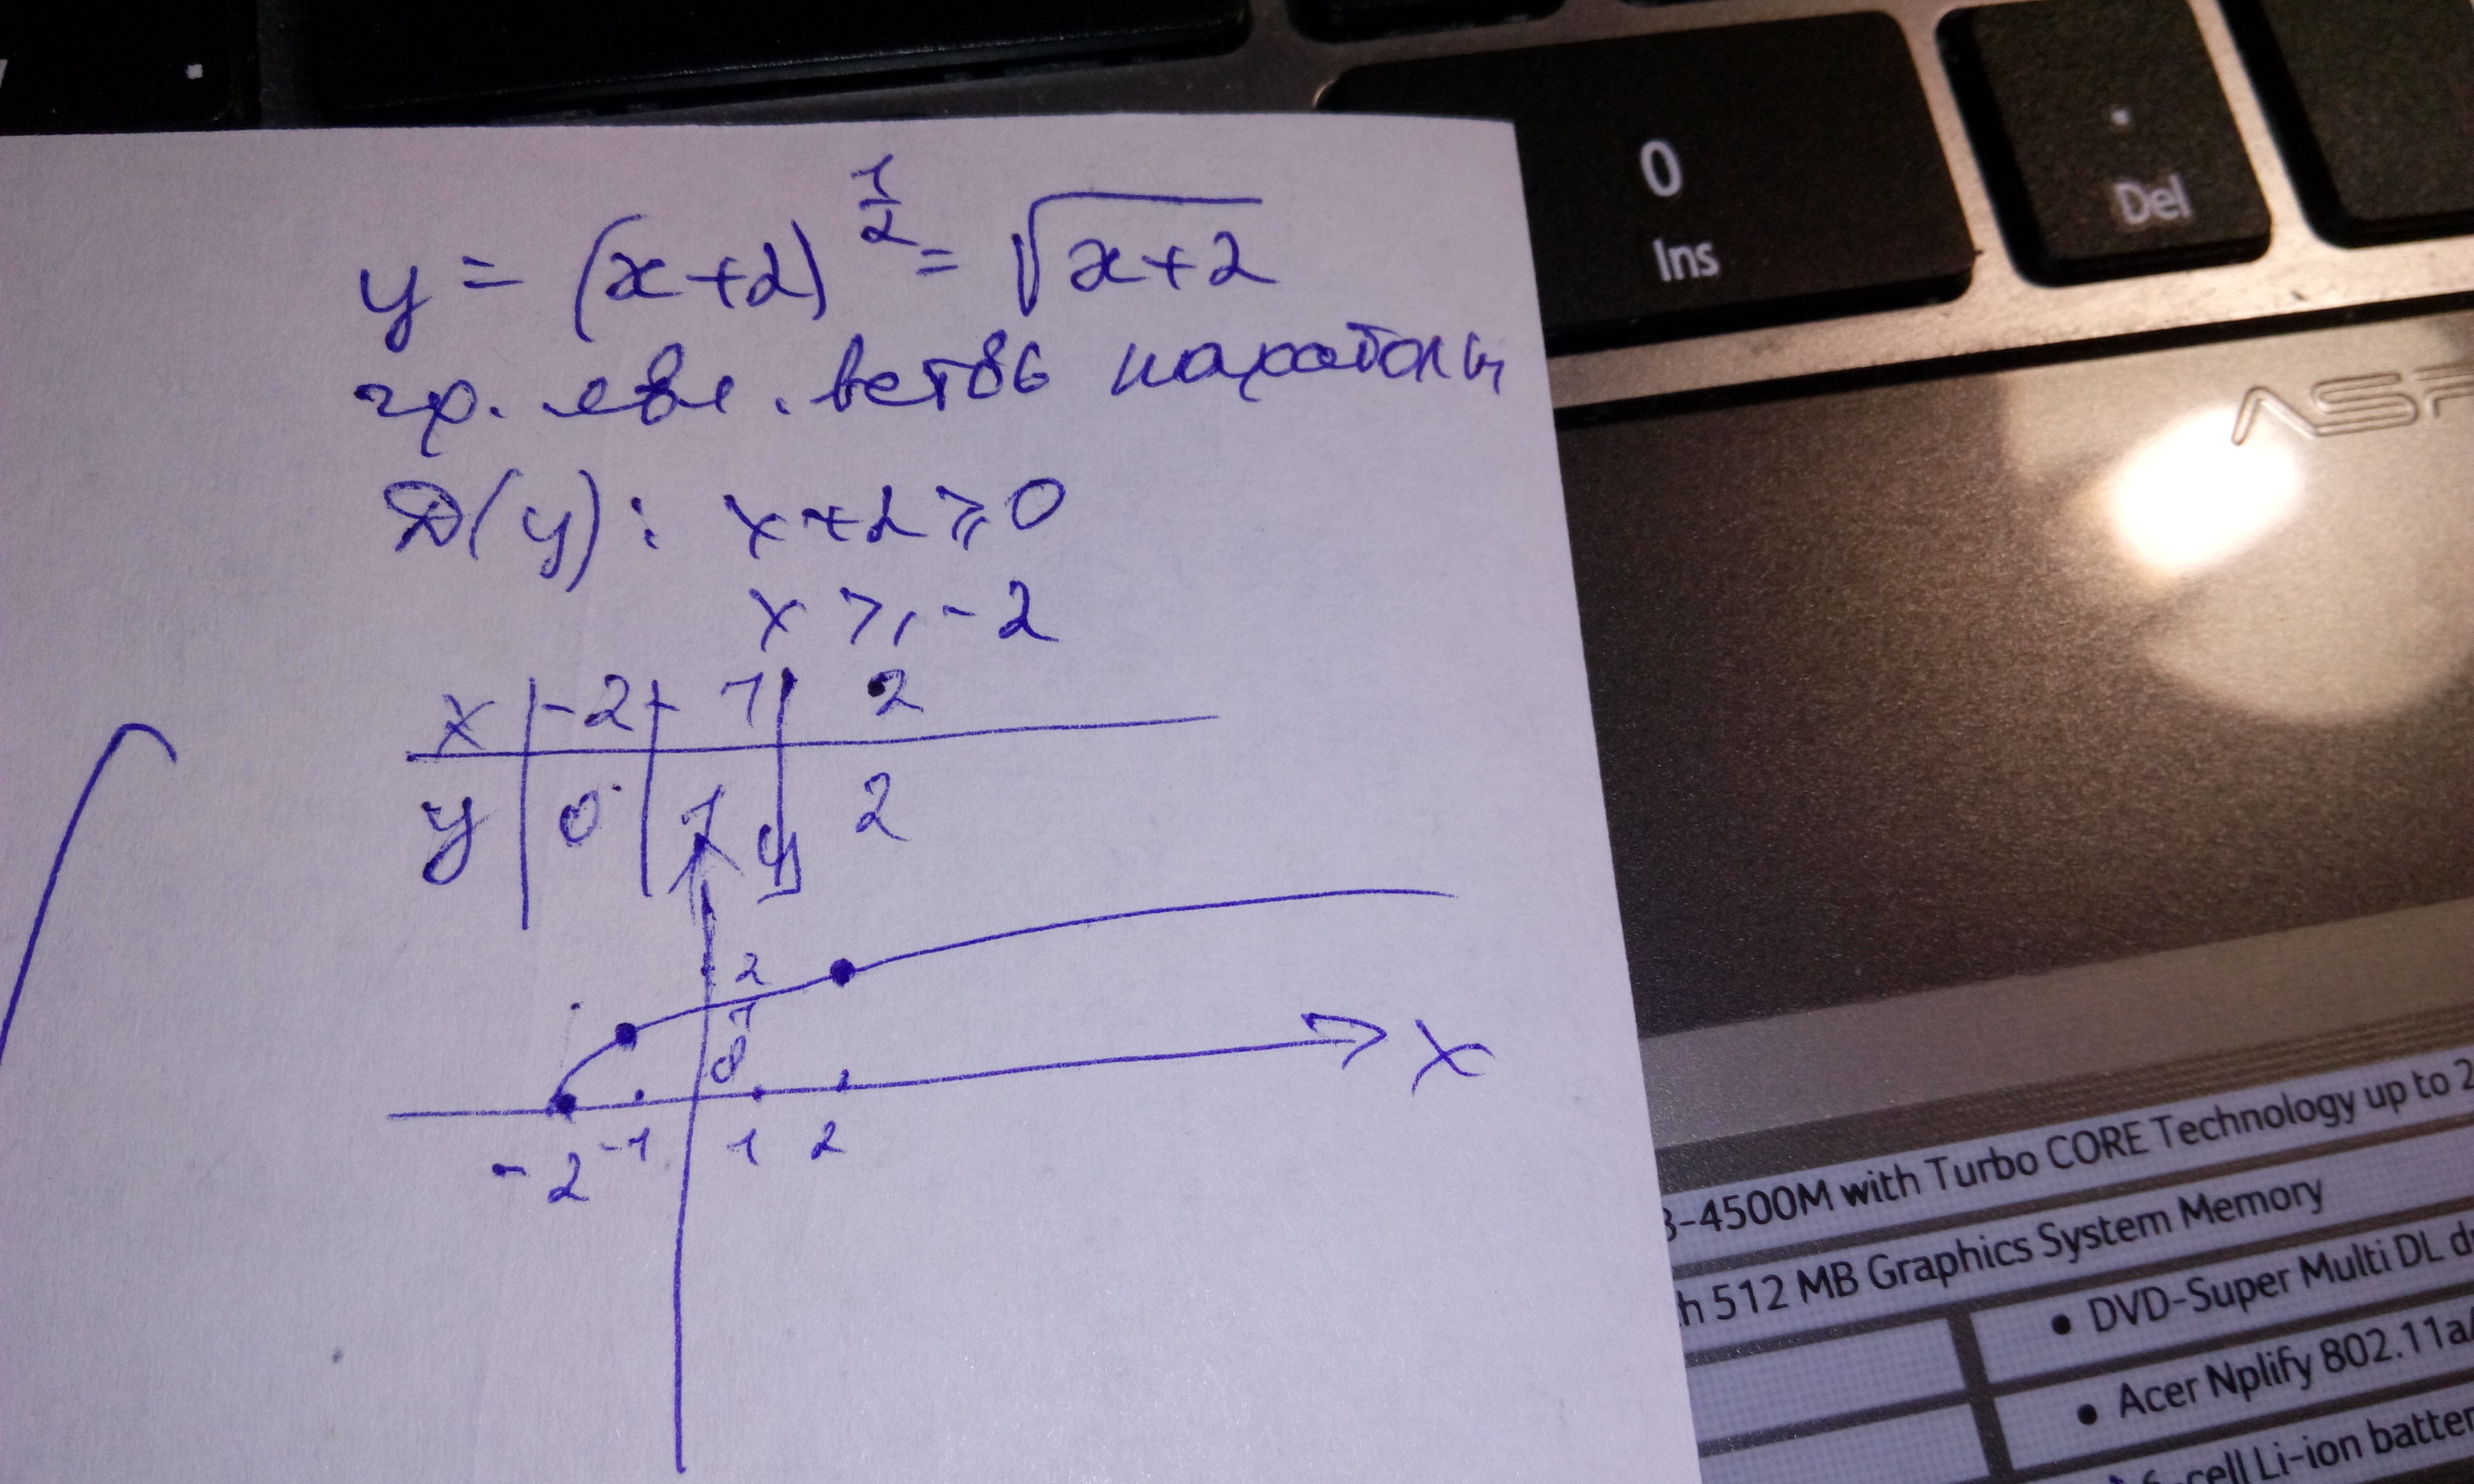 0
Ins
.
Del
y = (x+2)^{1/2} = √(x+2)
гр. явл. ветвь параболы
D(y): x+2 ≥ 0
x ≥ -2
x | -2 | -1 | 2
y | 0 | 1 | 2
y
2
1
0
x
-2 -1 1 2
ASP
-4500M with Turbo CORE Technology up to 2
h 512 MB Graphics System Memory
• DVD-Super Multi DL d
• Acer Nplify 802.11a/
6-cell Li-ion batter